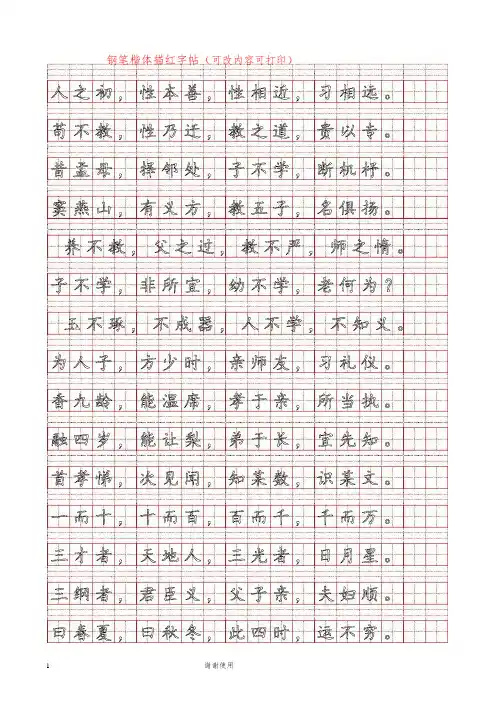 钢笔楷体描红字帖（可改内容可打印）
人之初，性本善，性相近，习相远。
苟不教，性乃迁，教之道，贵以专。
昔孟母，择邻处，子不学，断机杼。
窦燕山，有义方，教五子，名俱扬。
养不教，父之过，教不严，师之惰。
子不学，非所宜，幼不学，老何为？
玉不琢，不成器，人不学，不知义。
为人子，方少时，亲师友，习礼仪。
香九龄，能温席，孝于亲，所当执。
融四岁，能让梨，弟于长，宜先知。
首孝悌，次见闻，知某数，识某文。
一而十，十而百，百而千，千而万。
三才者，天地人，三光者，日月星。
三纲者，君臣义，父子亲，夫妇顺。
曰春夏，曰秋冬，此四时，运不穷。
1 谢谢使用